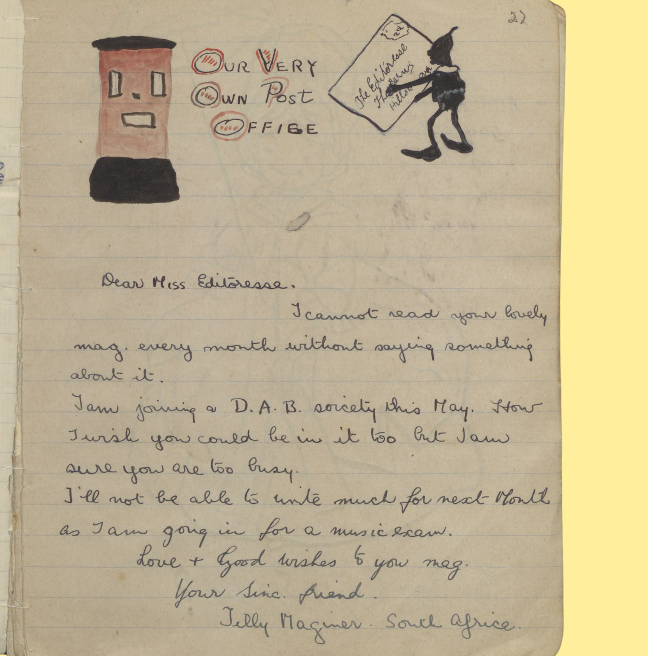 27
OUR VERY
OWN POST
OFFIBE
The Editoresse
Dear Miss Editoresse.
I cannot read your lovely
mag. every month without saying something
about it.
I am joining a D.A.B. soicety this May. How
I wish you could be in it too but I am
sure you are too busy.
I'll not be able to write much for next Month
as I am going in for a music exam.
Love + Good wishes to you mag.
Your Sinc. friend.
Tilly Maginer. South Africa.